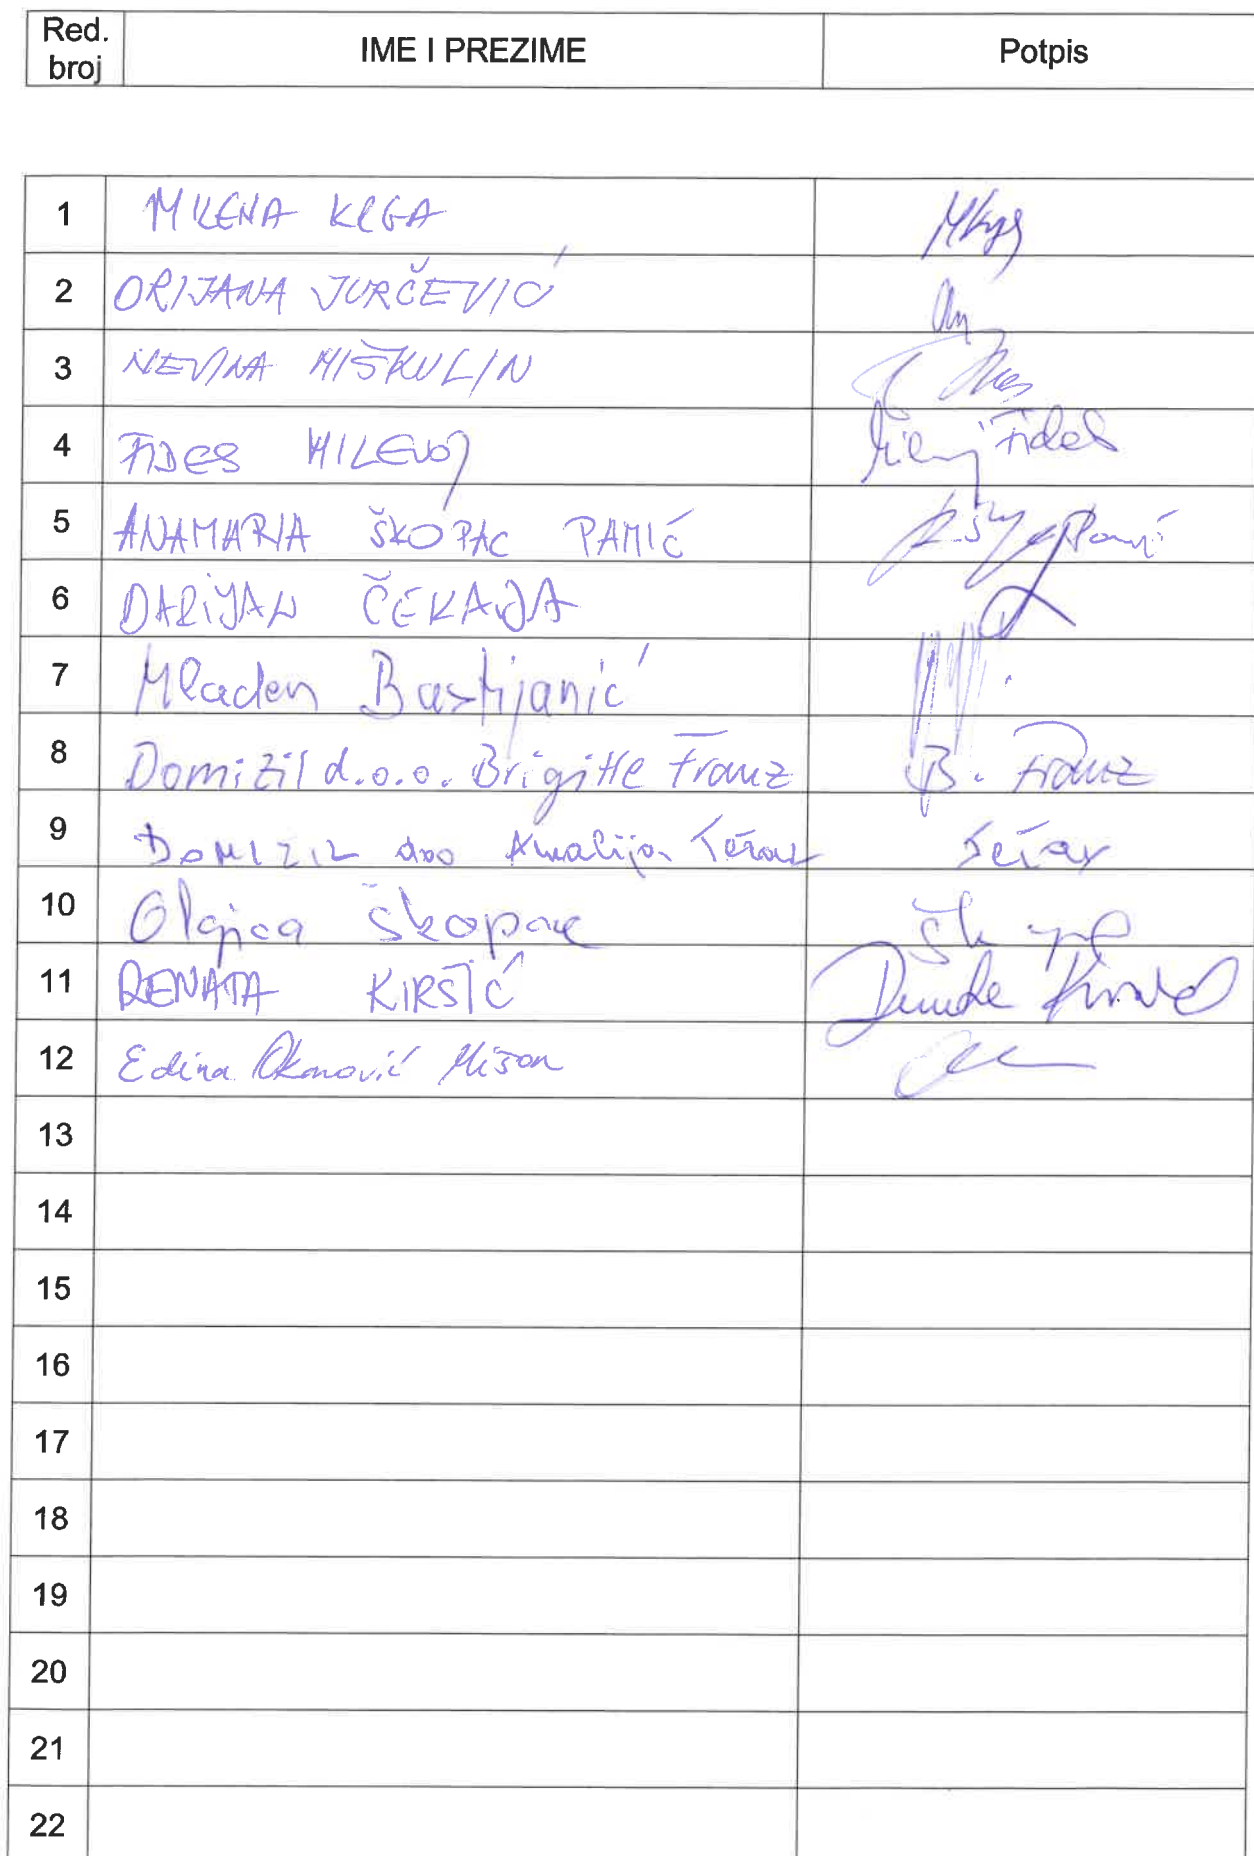 Red. broj IME I PREZIME Potpis
1 MILENA KRGA
2 ORIJANA JURČEVIĆ
3 NEVINA MIŠKULIN
4 FIDES MILEVOJ Fides
5 ANAMARIA ŠKOPAC PAMIĆ
6 DARIJAN ČEKADA
7 Mladen Bastijanić
8 Domizil d.o.o. Brigitte Franz B. Franz
9 DOMIZIL doo Amalija
10 Olgica Škopac
11 RENATA KIRŠIĆ
12 Edina
13
14
15
16
17
18
19
20
21
22